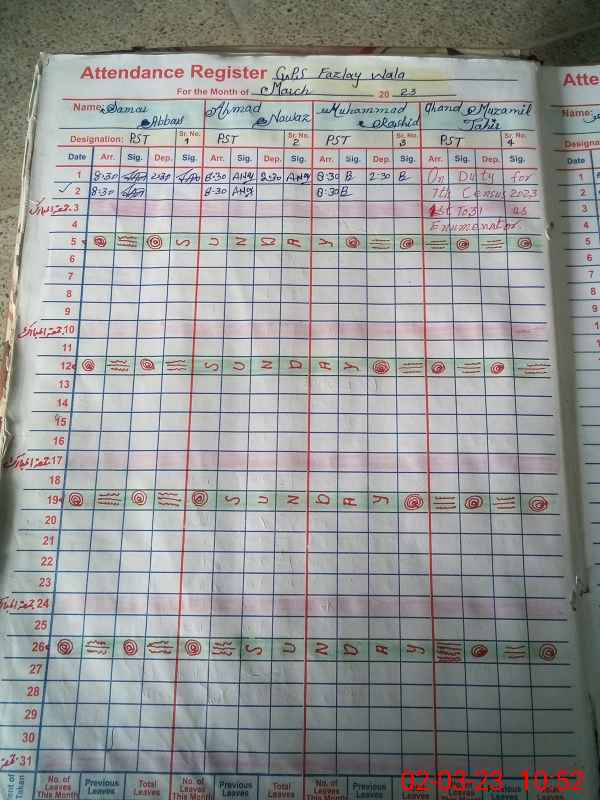 Attendance Register GPS Fazlay Wala
For the Month of March 20 23
Name Samar Abbas Ahmad Nawaz Muhammad Rashid Chand Muzamil Tahir
Designation: PST Sr. No. 1 PST Sr. No. 2 PST Sr. No. 3 PST Sr. No. 4
Date Arr. Sig. Dep. Sig. Arr. Sig. Dep. Sig. Arr. Sig. Dep. Sig. Arr. Sig. Dep. Sig.
1 8:30 2:30 8:30 ANG 2:30 ANG 8:30 B 2:30 B On Duty for
2 8:30 8:30 ANG 8:30 B 7th Census 2023
3 1st To 31 as
4 Enumenator.
5 SUNDAY
6
7
8
9
10
11
12 SUNDAY
13
14
15
16
17
18
19 SUNDAY
20
21
22
23
24
25
26 SUNDAY
27
28
29
30
31
No. of Leaves This Month Previous Leaves Total Leaves No. of Leaves This Month Previous Leaves Total Leaves No. of Leaves This Month Previous Leaves
02-03-23 10:52
Atte
Name:
Designation:
Date
1
2
3
4
5
6
7
8
9
10
11
12